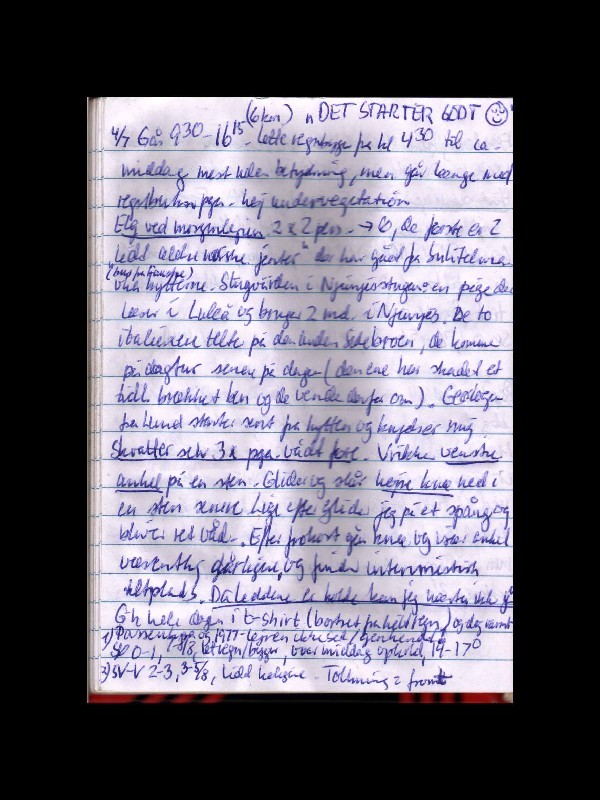 (6 km) "DET STARTER GODT ☺"
4/7 Går 9³⁰-16¹⁵ - Lette regnbyger fra kl 4³⁰ til ca.
middag mest uden betydning, men går længe med
regnbukser pga. høj undervegetation
Elg ved morgen 2 x 2 pers. → 6, de første er 2
ældre norske jenter" der har gået fra Sulitelma
hytterne. Stugvärden i Njunjesstugan: en pige der
læser i Luleå og bruger 2 md. i Njunjes. De to
italienere telte på den anden side broen, de kommer
på dagtur senere på dagen (den ene har skadet et
tidl. brækket ben og de vender derfor om). Geologen
fra Lund starter sent fra hytten og krydser mig
Skvatter selv 3x pga. vådt føre. Vrikker venstre
ankel på en sten. Glider og slår højre knæ ned i
en sten senere. Lige efter glider jeg på et spång og
bliver ret våd. Efter frokost går knæ og især ankel
væsentlig dårligere, og finder intermistisk
teltplads. Da leddene er kolde kan jeg næsten ikke gå
Gik hele dagen i t-shirt (bortset fra helt regn) og dag varmt
1) 1977-lejren
SØ 0-1, 7-8/8, let regn/byger, over middag ophold, 14-17°
3) SV-V 2-3, 3-5/8, Tolkning = front